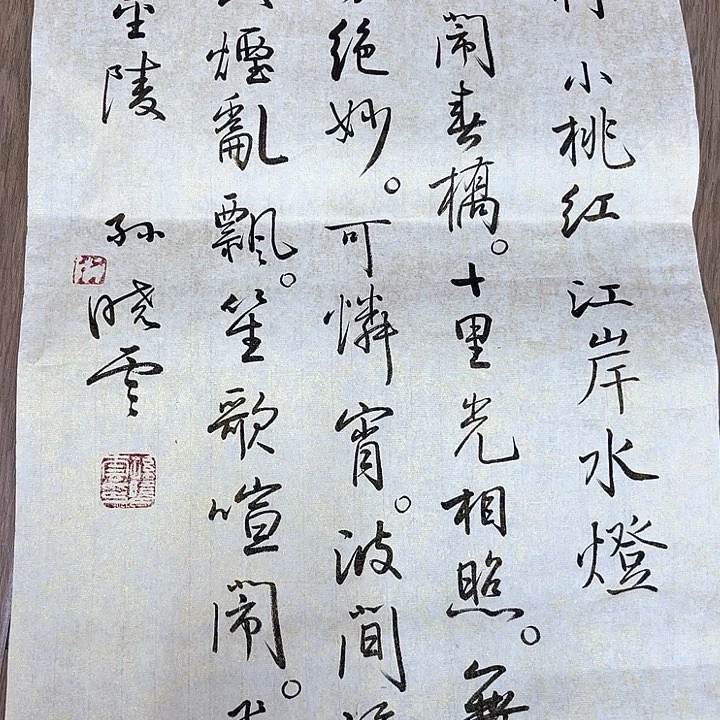 小桃红 江岸水燈
鬧春橋。十里光相照。
绝妙。可憐宵。波間
煙亂飄。笙歌喧鬧。
金陵 孙晓雲